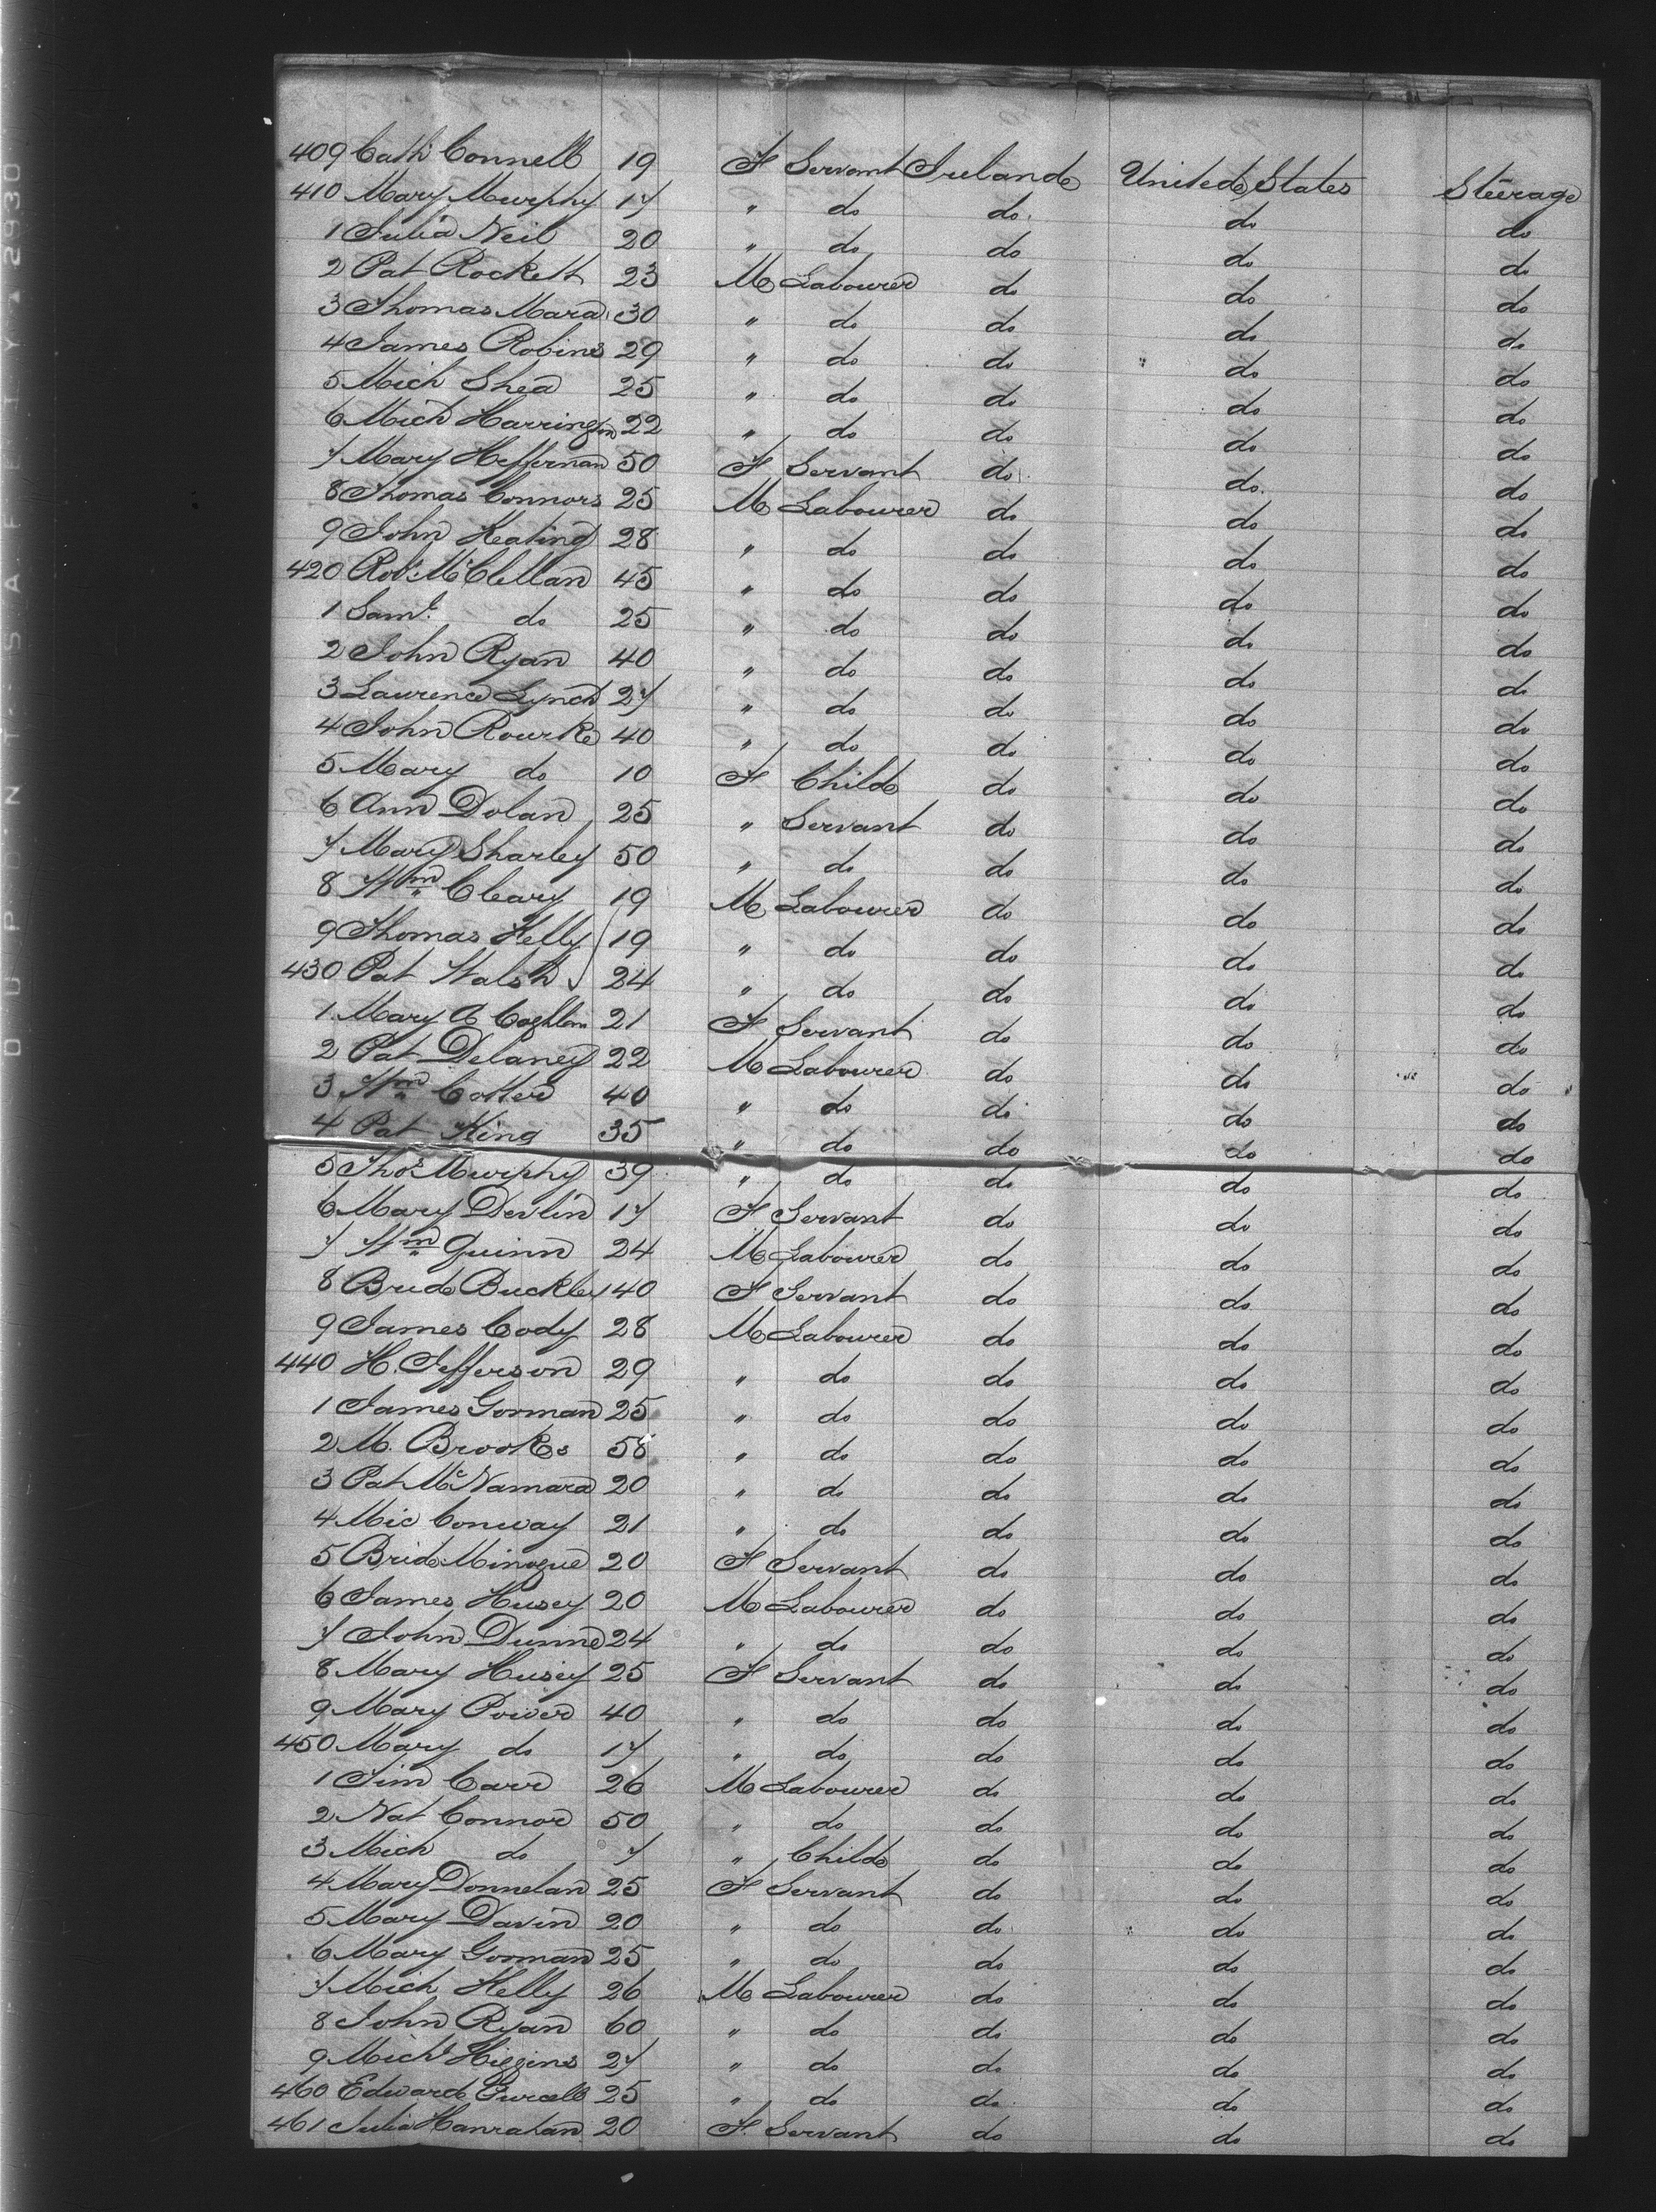 409 Cath Connell 19 F Servant Ireland United States Steerage
410 Mary Murphy 17 " do do do do
1 Julia Neil 20 " do do do do
2 Pat Rockett 23 M Labourer do do do
3 Thomas Mara 30 " do do do do
4 James Robins 29 " do do do do
5 Mich Shea 25 " do do do do
6 Mich Harrington 22 " do do do do
7 Mary Heffernan 50 F Servant do do do
8 Thomas Connors 25 M Labourer do do do
9 John Keating 28 " do do do do
420 Robt. McClellan 45 " do do do do
1 Saml. do 25 " do do do do
2 John Ryan 40 " do do do do
3 Laurence Lynch 27 " do do do do
4 John Rourke 40 " do do do do
5 Mary do 10 F Child do do do
6 Ann Dolan 25 " Servant do do do
7 Mary Sharley 50 " do do do do
8 Wm Cleary 19 M Labourer do do do
9 Thomas Kelly 19 " do do do do
430 Pat Walsh 24 " do do do do
1 Mary A Coghlan 21 F Servant do do do
2 Pat Delaney 22 M Labourer do do do
3 Wm Cotter 40 " do do do do
4 Pat King 35 " do do do do
5 Thos. Murphy 39 " do do do do
6 Mary Devlin 17 F Servant do do do
7 Wm Quinn 24 M Labourer do do do
8 Brid Buckley 40 F Servant do do do
9 James Cody 28 M Labourer do do do
440 H. Jefferson 29 " do do do do
1 James Gorman 25 " do do do do
2 M. Brookes 58 " do do do do
3 Pat McNamara 20 " do do do do
4 Mic Conway 21 " do do do do
5 Brid Minogue 20 F Servant do do do
6 James Husey 20 M Labourer do do do
7 John Dunne 24 " do do do do
8 Mary Husey 25 F Servant do do do
9 Mary Power 40 " do do do do
450 Mary do 17 " do do do do
1 Tim Carr 26 M Labourer do do do
2 Nat Connor 50 " do do do do
3 Mich do 7 " Child do do do
4 Mary Donnelan 25 F Servant do do do
5 Mary Davin 20 " do do do do
6 Mary Gorman 25 " do do do do
7 Mich Kelly 26 M Labourer do do do
8 John Ryan 60 " do do do do
9 Michl Higgins 27 " do do do do
460 Edward Purcell 25 " do do do do
461 Julia Hanrahan 20 F Servant do do do